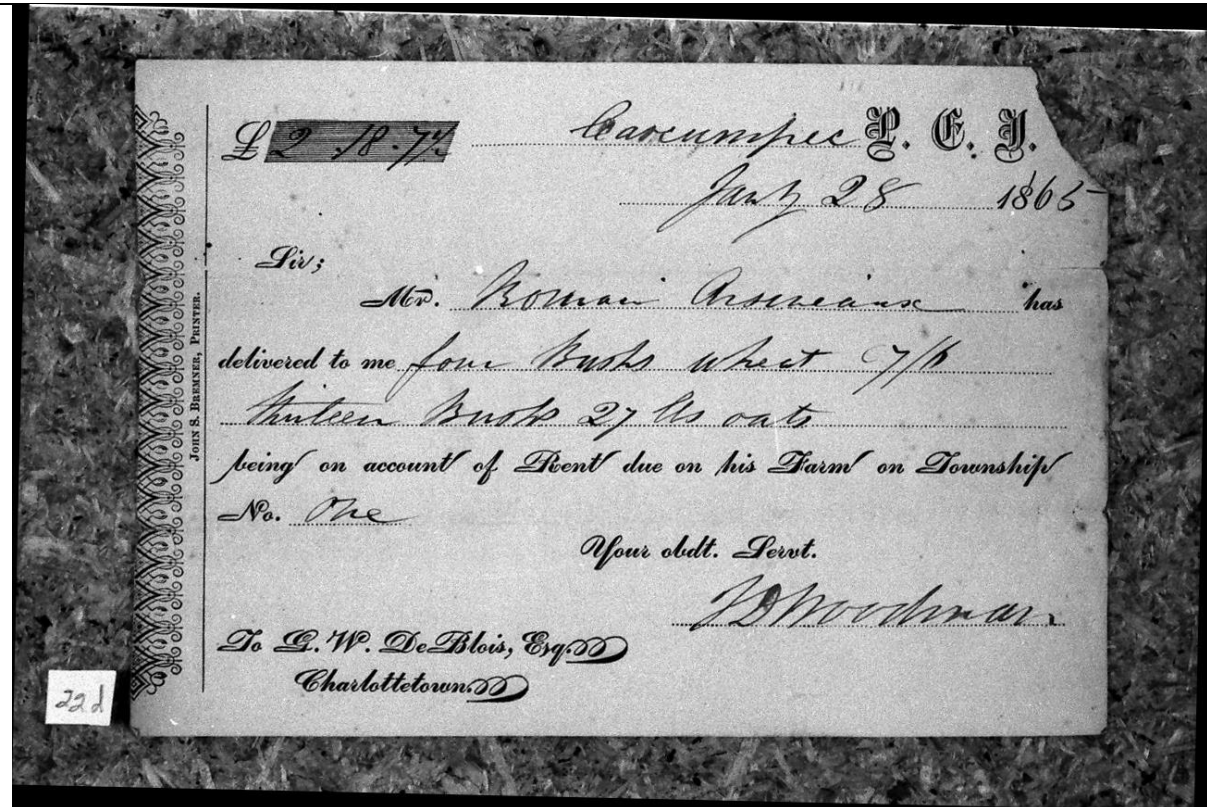 £ 2.18.7½ Cascumpec P. E. I.
Jany 28 1865
Sir;
Mr. Romain Arseneaux has
delivered to me four Bushs wheat 7/6
thirteen Bush 27 lbs oats
being on account of Rent due on his Farm on Township
No. One
Your obdt. Servt.
J D Woodman
To G. W. DeBlois, Esq.
Charlottetown
JOHN S. BREMNER, PRINTER.
22d